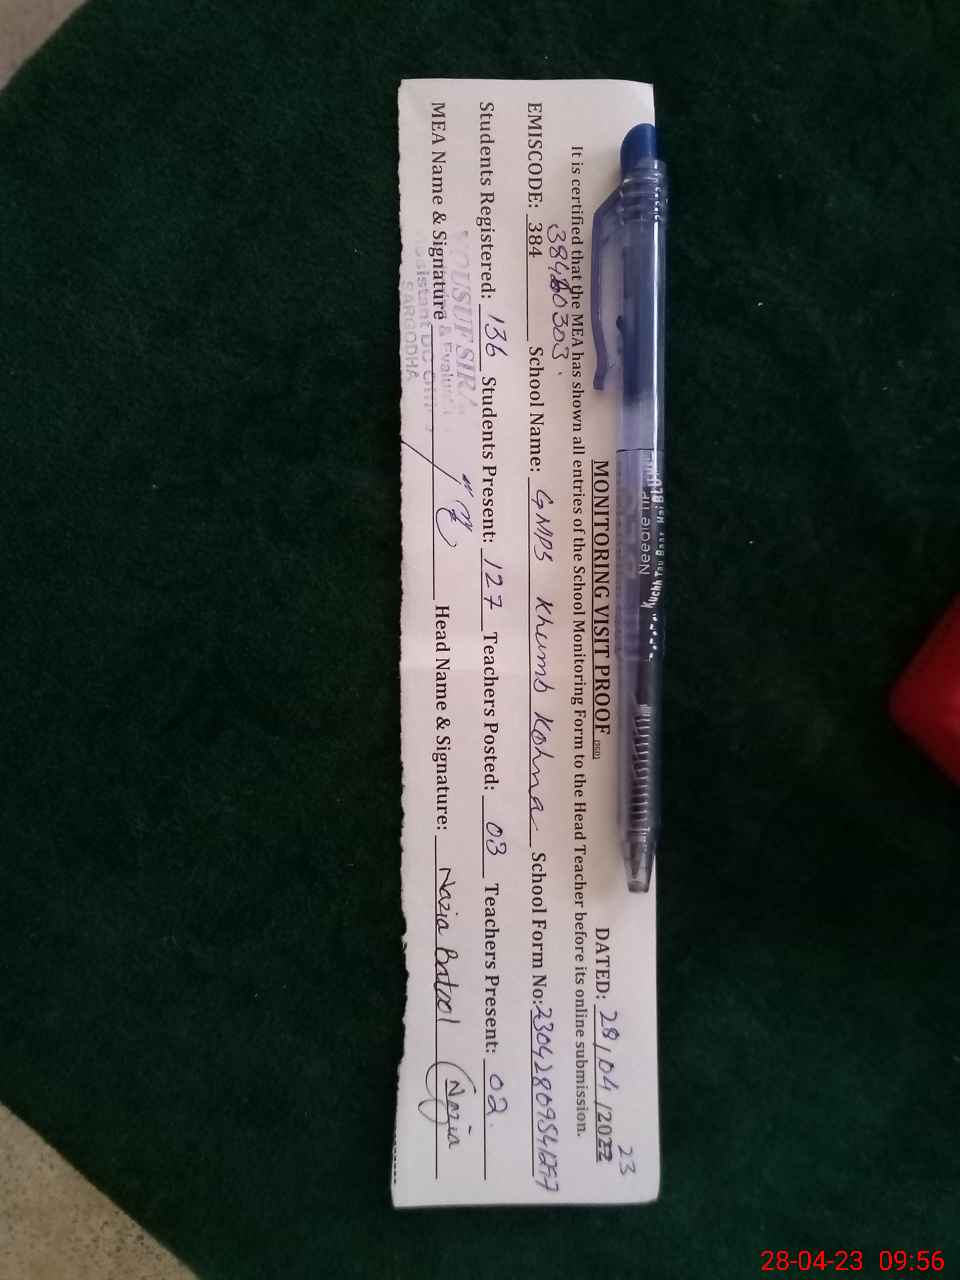 MONITORING VISIT PROOF (SED) DATED: 28/04/2022 23
It is certified that the MEA has shown all entries of the School Monitoring Form to the Head Teacher before its online submission.
38460303.
EMISCODE: 384 School Name: GMPS Khumb Kohna School Form No:
Students Registered: 136 Students Present: 127 Teachers Posted: 03 Teachers Present: 02.
MEA Name & Signature Head Name & Signature: Nazia Batool (Nazia
YOUSUF
& Evaluati
SARGODHA
Needle Tip
28-04-23 09:56